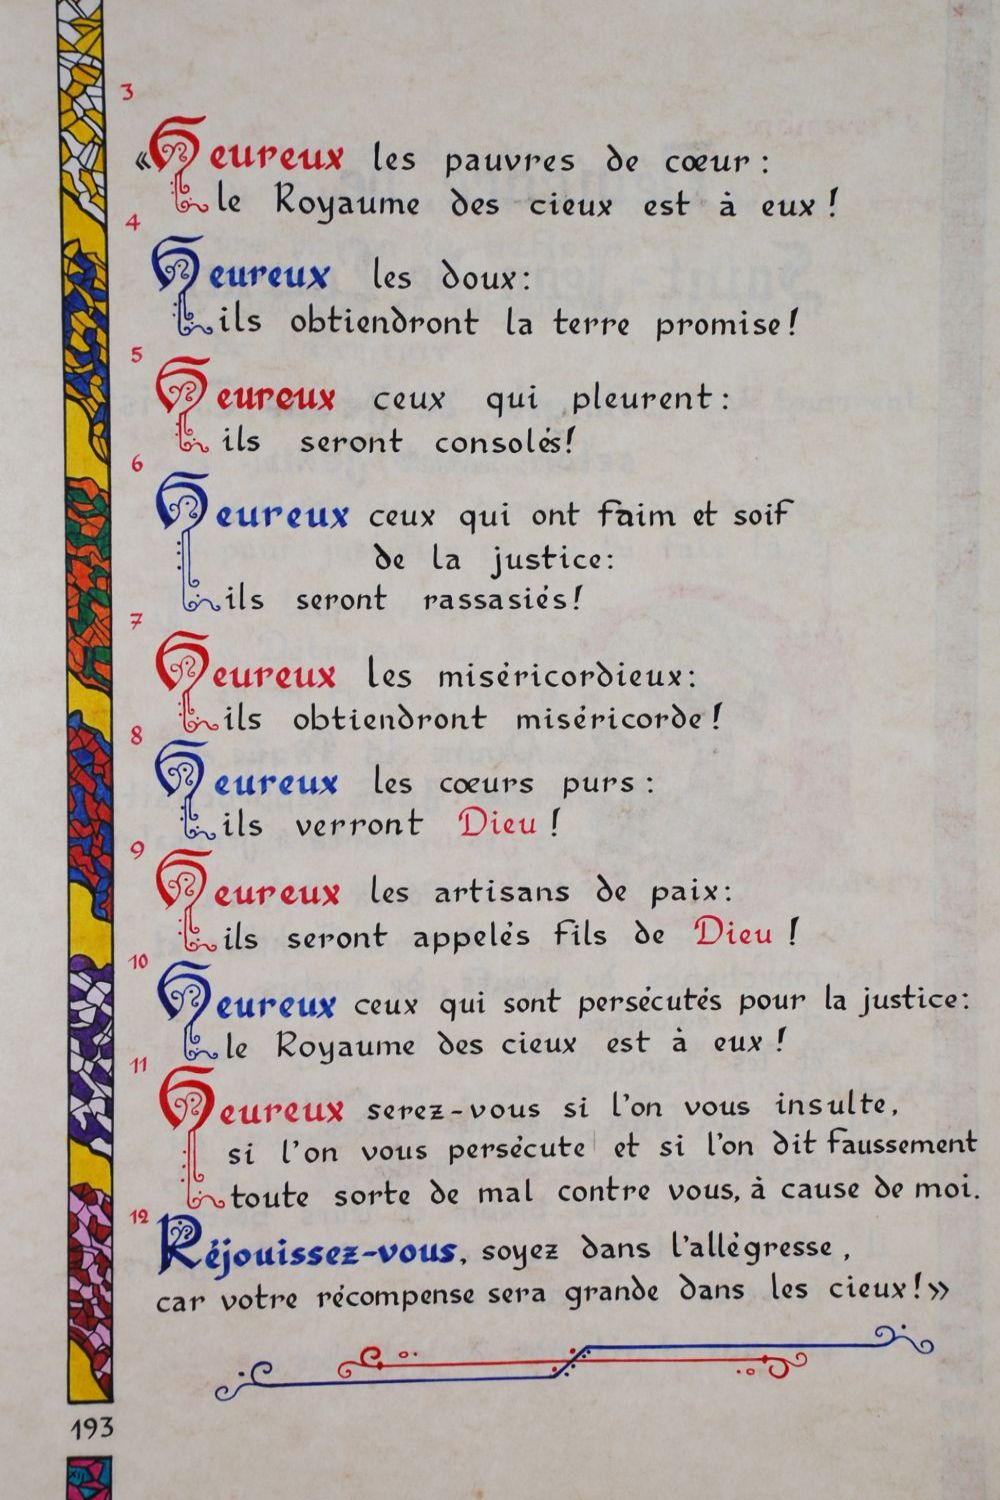 3
«Heureux les pauvres de cœur :
le Royaume des cieux est à eux !
4
Heureux les doux:
ils obtiendront la terre promise!
5
Heureux ceux qui pleurent:
ils seront consolés!
6
Heureux ceux qui ont faim et soif
de la justice:
ils seront rassasiés!
7
Heureux les miséricordieux:
ils obtiendront miséricorde!
8
Heureux les cœurs purs :
ils verront Dieu !
9
Heureux les artisans de paix:
ils seront appelés fils de Dieu !
10
Heureux ceux qui sont persécutés pour la justice:
le Royaume des cieux est à eux !
11
Heureux serez-vous si l'on vous insulte,
si l'on vous persécute et si l'on dit faussement
toute sorte de mal contre vous, à cause de moi.
12
Réjouissez-vous, soyez dans l'allégresse,
car votre récompense sera grande dans les cieux!»
193
XII